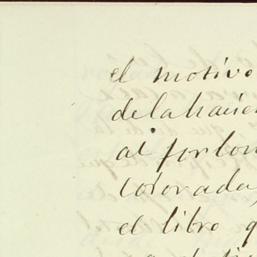 el motivo
delahacien
al forlon
Colorada,
el libro q